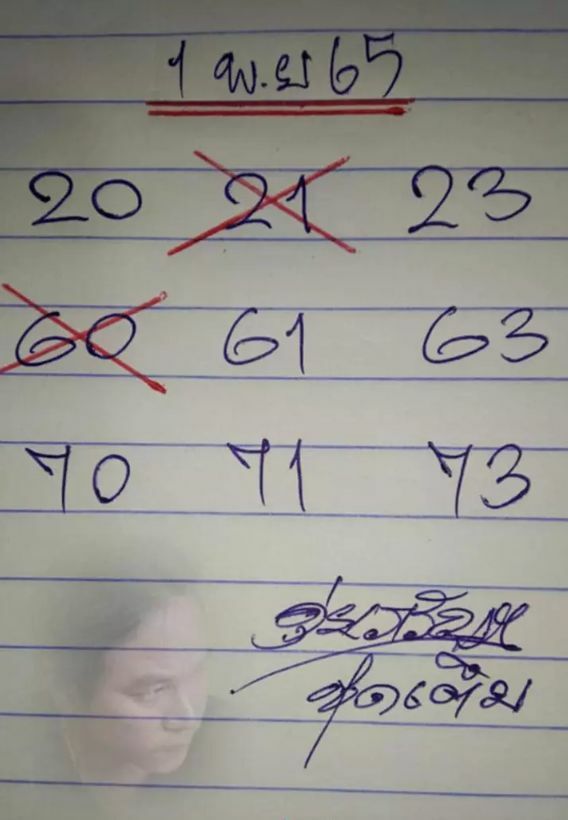 1 พ.ย 65
20 21 23
60 61 63
70 71 73
ชุดเต็ม